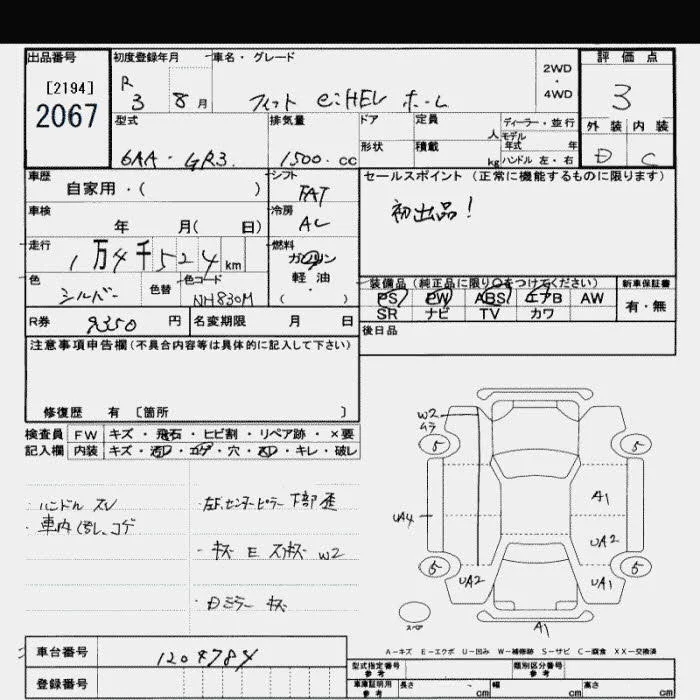 出品番号
[2194]
2067
初度登録年月
R 3 8 月
車名・グレード
フィット e:HEV ホーム
2WD
・
4WD
評価点
3
外装 内装
D C
型式
6AA・GR3
排気量
1500 cc
ドア
定員
人
ディーラー・並行
モデル年式 年
形状
積載
kg
ハンドル 左・右
車歴
自家用・( )
シフト
FAT
セールスポイント(正常に機能するものに限ります)
初出品!
車検
年 月( 日)
冷房
AC
走行
1万4千524km
燃料
ガソリン
軽・油
( )
色
シルバー
色替
色コード
NH830M
装備品(純正品に限り〇をつけてください)
PS PW ABS エアB AW
SR ナビ TV カワ
新車保証書
有・無
R券 9350 円
名変期限 月 日
後日品
注意事項申告欄(不具合内容等は具体的に記入して下さい)
修復歴 有 〔箇所 〕
検査員 FW キズ・飛石・ヒビ割・リペア跡・×要
記入欄 内装 キズ・汚れ・コゲ・穴・スレ・キレ・破し
・ハンドル スレ
・車内 汚れ、コゲ
・左F、センターピラー下部 歪
・キズ E スリキズ W2
・Dミラー キズ
W2
ムラ
5
5
UA4
A1
UA2
5
5
UA2
UA1
スペア
A1
A-キズ E-エクボ U-凹み W-補修跡 S-サビ C-腐食 XX-交換済
車台番号 1204784
登録番号
型式指定番号 参考
類別区分番号 参考
車庫証明用 参考
長さ cm
幅 cm
高さ cm